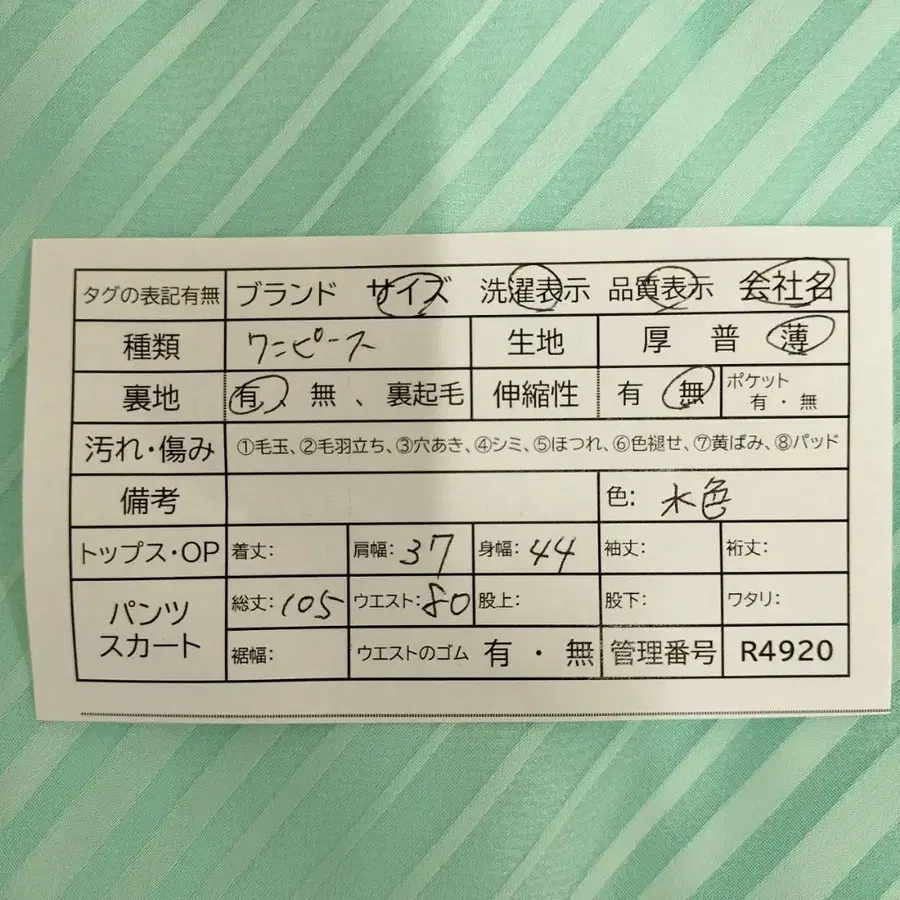 タグの表記有無 ブランド サイズ 洗濯表示 品質表示 会社名
種類 ワンピース 生地 厚 普 薄
裏地 有、無、裏起毛 伸縮性 有 無 ポケット 有・無
汚れ・傷み ①毛玉、②毛羽立ち、③穴あき、④シミ、⑤ほつれ、⑥色褪せ、⑦黄ばみ、⑧パッド
備考 色: 水色
トップス・OP 着丈: 肩幅: 37 身幅: 44 袖丈: 裄丈:
パンツ スカート 総丈: 105 ウエスト: 80 股上: 股下: ワタリ:
裾幅: ウエストのゴム 有・無 管理番号 R4920